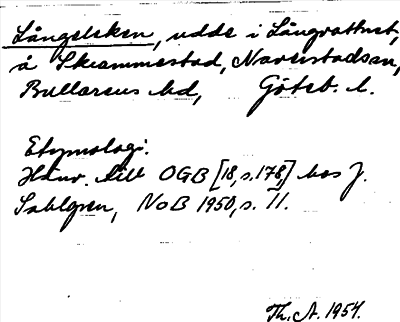 Långeleken, udde i Långevattnet,
å Skrammestad, Naverstads sn,
Bullarens hd, Göteb. l.
Etymologi.
Hänv. till OGB [18, s. 178,] hos J.
Sahlgren, NoB 1950, s. 11.
Th. A. 1954.